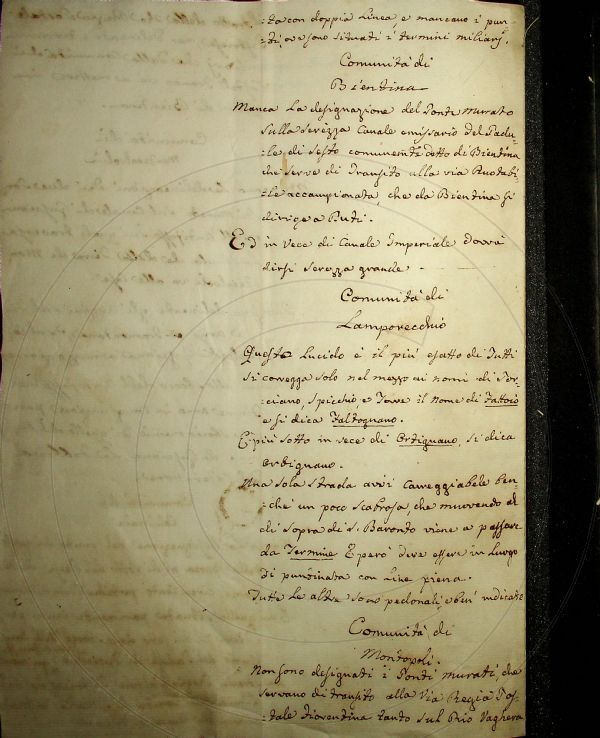 =ta con doppia Linea, e mancano i pun=
=ti, ove sono situati i termini miliarj.
Comunità di
Bientina
Manca La designazione del Ponte Murato
sulla Serezza Canale emissario del Padu=
=le di Sesto comunemte detto di Bientina
che serve di Transito alla via Ruotabi=
=le accampionata, che da Bientina si
dirige a Buti.
Ed in vece di Canale Imperiale dovrà
dirsi Serezza grande.
Comunità di
Lamporecchio
Questo Lucido è il più esatto di Tutti
si corregga solo nel mezzo ai nomi di Por=
ciano, Spicchio, e il nome di Fattojo
e si dica Faltognano.
E più sotto in vece di Ortignano, si dica
Orbignano.
Una sola strada avvi Carreggiabele ben=
=chè un poco scabrosa, che muovendo al
di sopra di S. Baronto viene a passare
da Termine E però deve essere in Luogo
di punsinata con Line piena.
Tutte Le altre sono pedonali, e ben' indicate
Comunità di
Montopoli.
Non sono designati i Ponti Murati, che
servano di transito alla Via Regia Pos=
=tale Fiorentina tanto sul Rio Vaghera